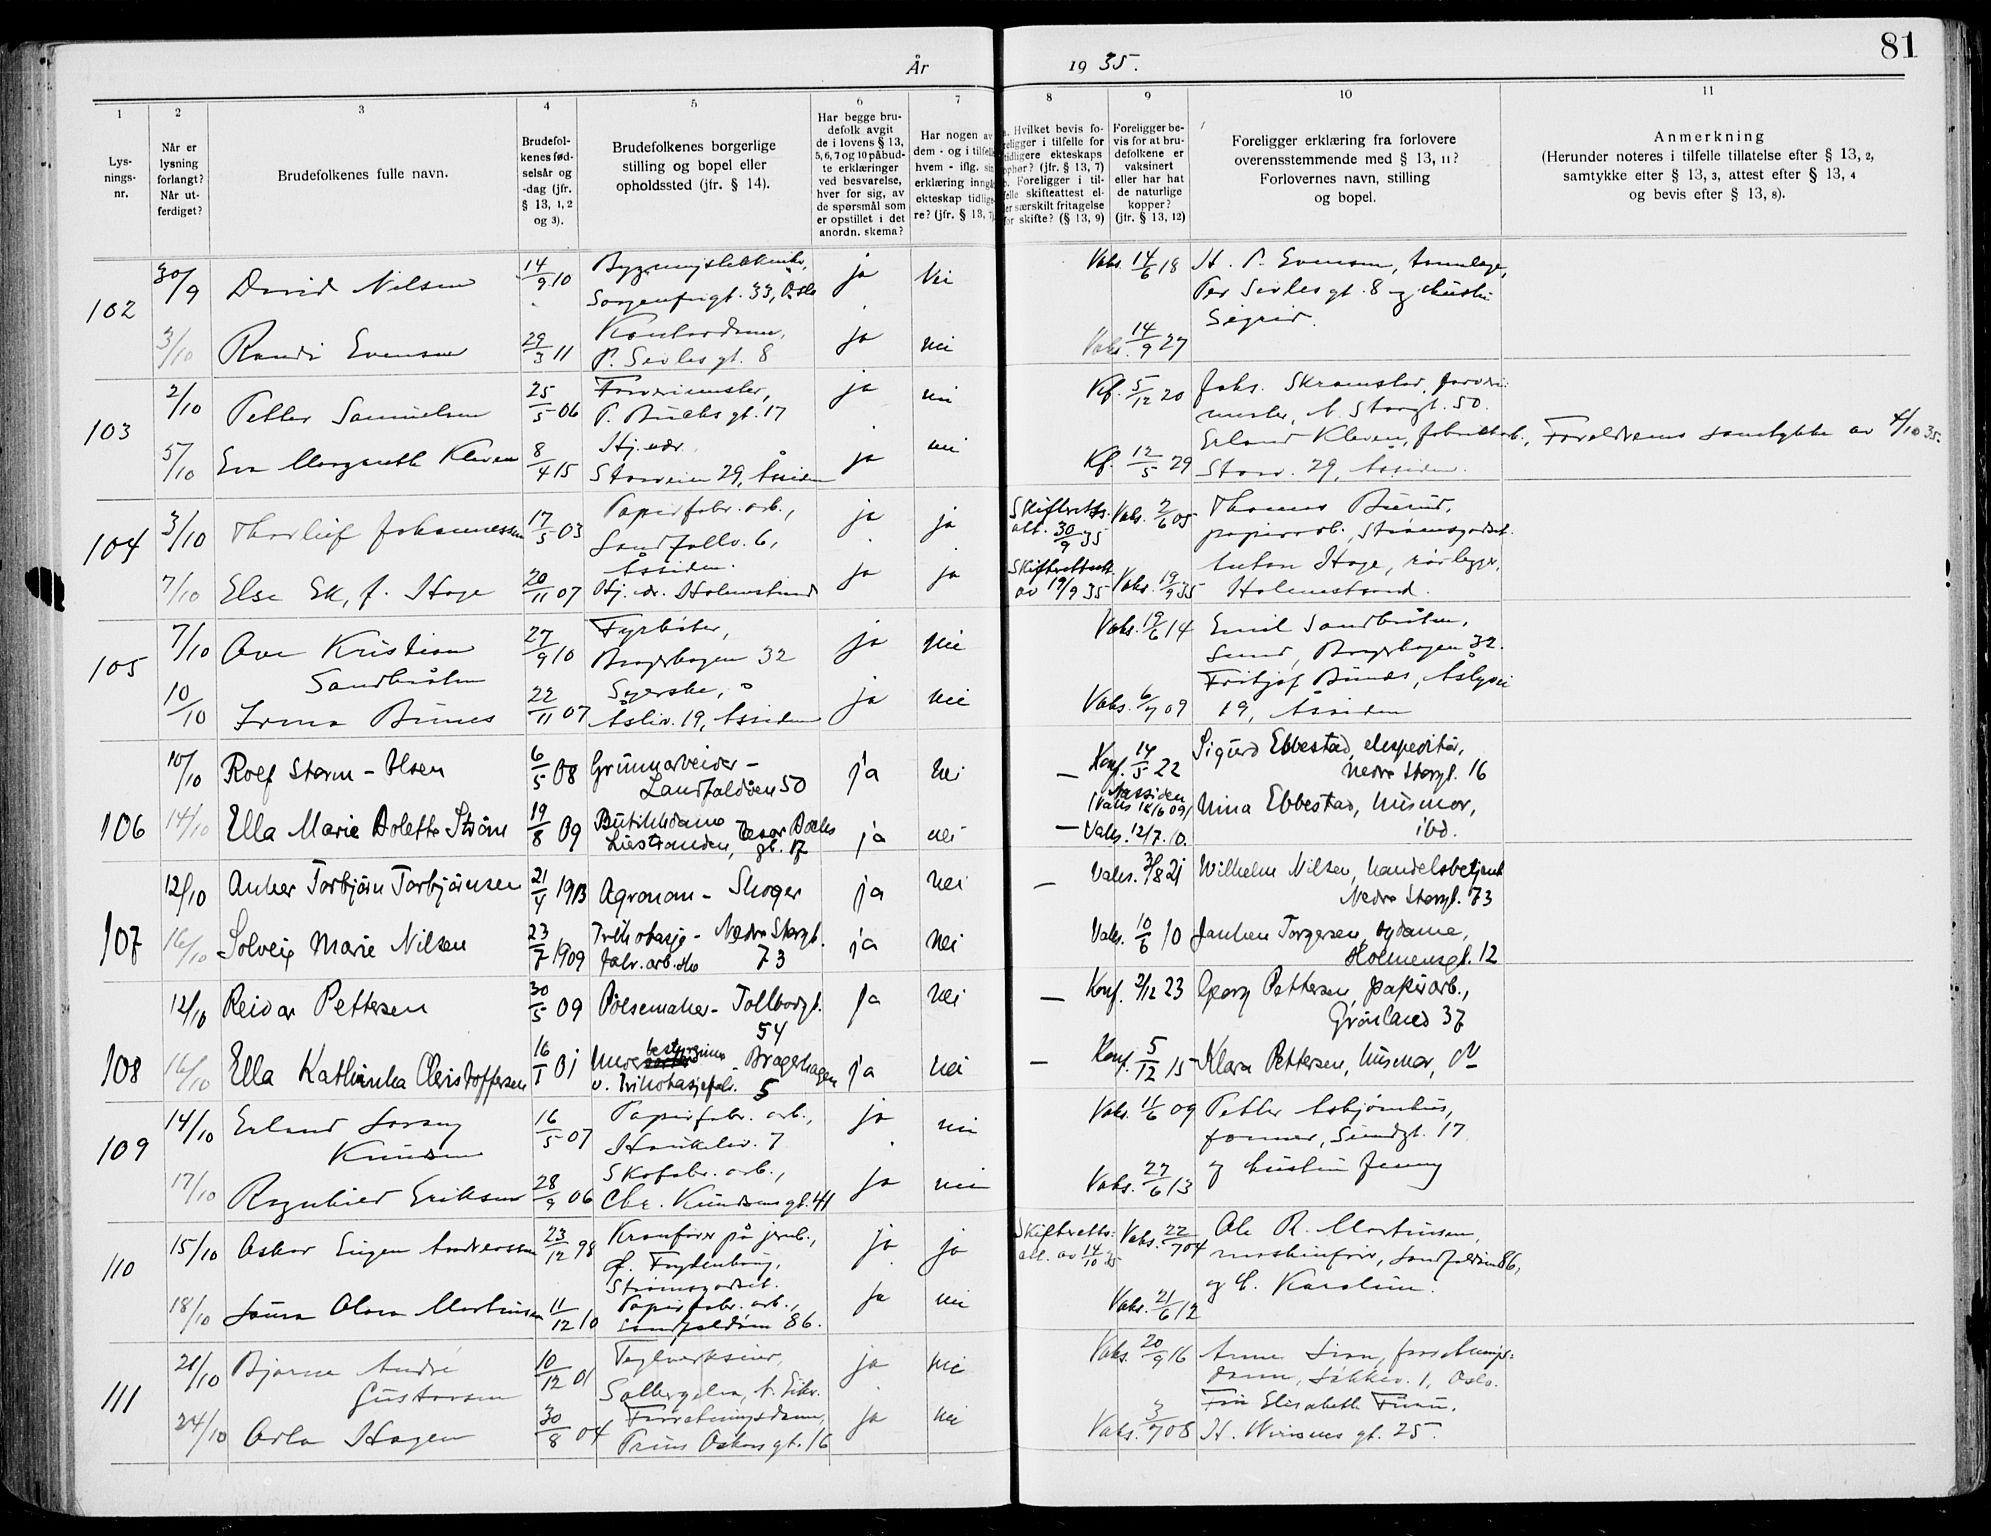 81
År 1935.
1 2 3 4 5 6 7 8 9 10 11
Lys-
nings-
nr.
Når er
lysning
forlangt?
Når ut-
ferdiget?
Brudefolkenes fulle navn.
Brudefol-
kenes fød-
selsår og
-dag (jfr.
§ 13, 1, 2
og 3).
Brudefolkenes borgerlige
stilling og bopel eller
opholdssted (jfr. § 14).
Har begge bru-
defolk avgit
de i lovens § 13,
5, 6, 7 og 10 påbud-
te erklæringer
ved besvarelse,
hver for sig, av
de spørsmål som
er opstillet i det
anordn. skema?
Har nogen av
dem - og i tilfelle
hvem - iflg. sin
erklæring inngå
ekteskap tidlige
re? (jfr. § 13, 7)
a. Hvilket bevis fo-
religger i tilfelle for
tidligere ekteskaps
ophør? (jfr. § 13, 7)
b. Foreligger i til-
felle skifteattest el-
ler særskilt fritagelse
for skifte? (§ 13, 9)
Foreligger be-
vis for at bru-
defolkene er
vaksinert
eller har hat
de naturlige
kopper?
(jfr. § 13, 12)
Foreligger erklæring fra forlovere
overensstemmende med § 13, 11?
Forlovernes navn, stilling
og bopel.
Anmerkning
(Herunder noteres i tilfelle tillatelse efter § 13, 2,
samtykke efter § 13, 3, attest efter § 13, 4
og bevis efter § 13, 8).
102 30/9 David Nilsen 14/9 10
Sorgenfrigt. 33, Oslo ja nei Vaks. 14/6 18 H. P. Evensen,
Per Sivlesgt. 8 og hustru
Sigrid.
3/10 Randi Evensen 29/3 11 Kontordame,
P. Sivlesgt. 8 ja nei Vaks. 14/9 27
103 2/10 Petter Samuelsen 25/5 06
P. Buchs gt. 17 ja nei Kf. 5/12 20 Johs. Skramstad,
N. Storgt. 50.
5/10 Eva Margareth Kleven 8/4 15 Hj. vær.
Storveien 29, Åssiden ja nei Kf. 12/5 29 Erland Kleven, fabrikkarb., Foreldrenes samtykke av 4/10 35.
Storv. 29, Åssiden.
104 3/10 Thorleif Johannessen 17/5 03 Papirfabr. arb.,
Landfallv. 6,
Åssiden. ja ja Skifteretts.
att. 30/9 35 Vaks. 2/6 05 Thomas Buerud,
papirarb., Strømsgodset.
7/10 Else Ek, f. Hoge 20/11 07 Hj. vær. Holmestrand ja ja Skifterettsatt.
av 19/9 35 Vaks. 19/9 35 Anton Hoge, rørlegger,
Holmestrand.
105 7/10 Ove Kristian
Sandbråten 27/9 10 Fyrbøter,
Bragerhagen 32 ja nei Vaks. 19/6 14 Emil Sandbråten,
Bragerhagen 32.
10/10 Irma Bunes 22/11 07 Syerske,
Åsliv. 19, Åssiden ja nei Vaks. 6/7 09 Fritjof Bunes, Åslyvei
19, Åssiden
106 10/10 Rolf Storm-Olsen 6/5 08 Grunnarbeider-
Landfaldøen 50 ja nei — Konf. 14/5 22
Aassiden
(Vaks 18/6 09) Sigurd Ebbestad, ekspeditør,
Nedre Storgt. 16
14/10 Ella Marie Dolette Strøm 19/8 09 Butikkdame
Liestranden, gt. 17 ja nei — Vaks. 12/7.10. Nina Ebbestad, husmor,
ibd.
107 12/10 Anker Torbjørn Torbjørnsen 21/4 1913 Agronom - Skoger ja nei — Vaks. 3/8 21 Wilhelm Nilsen, handelsbetjent
Nedre Storgt. 73
16/10 Solveig Marie Nilsen 23/7 1909 Trikotasje- Nedre Storgt.
fabr. arb.ske 73 ja nei Vaks. 10/6 10 Torgersen, sydame,
Holmensgt. 12
108 12/10 Reidar Pettersen 30/5 09 Pølsemaker- Tollbodgt.
54 ja nei — Konf. 2/12 23 Georg Pettersen, papirarb.,
Grønland 37
16/10 Ella Kathinka Christoffersen 16/1 01 Underbestyrerinne - Bragerhagen
v. trikotasjefabr. 5 ja nei — Konf. 5/12 15 Klara Pettersen, husmor,
109 14/10 Erland Lorang
Knudsen 16/5 07 Papirfabr. arb.,
Haukeliv. 7 ja nei Vaks. 11/6 09 Petter Asbjørnhus,
former, Sundgt. 17
og hustru Jenny
17/10 Ragnhild Eriksen 28/9 06 Skofabr. arb.,
Chr. Knudsens gt. 41 ja nei Vaks. 27/6 13
110 15/10 Oskar Eugen Andreassen 23/12 98 Kranfører på jernb.,
Ø. Frydenberg,
Strømsgodset. ja ja Skifteretts-
att. av 14/10 35 Vaks. 22/7 04 Ole R. Martinsen,
maskinfører, Landfaldøen 86,
og h. Karoline.
18/10 Laura Olava Martinsen 11/12 10 Papirfabr. arb.,
Landfaldøen 86. ja nei Vaks. 21/6 12
111 21/10 Bjarne André
Gustavsen 10/12 01 Teglverkseier,
Solbergelva, N. Eiker. ja nei Vaks. 20/9 16 Anne Lien, forretnings-
dame, Løkkev. 1, Oslo.
24/10 Asla Hagen 30/8 04 Forretningsdame,
Prins Oskars gt. 16 ja nei Vaks. 3/7 08 Frk. Elisabeth Furu,
H. Wiriesens gt. 25.